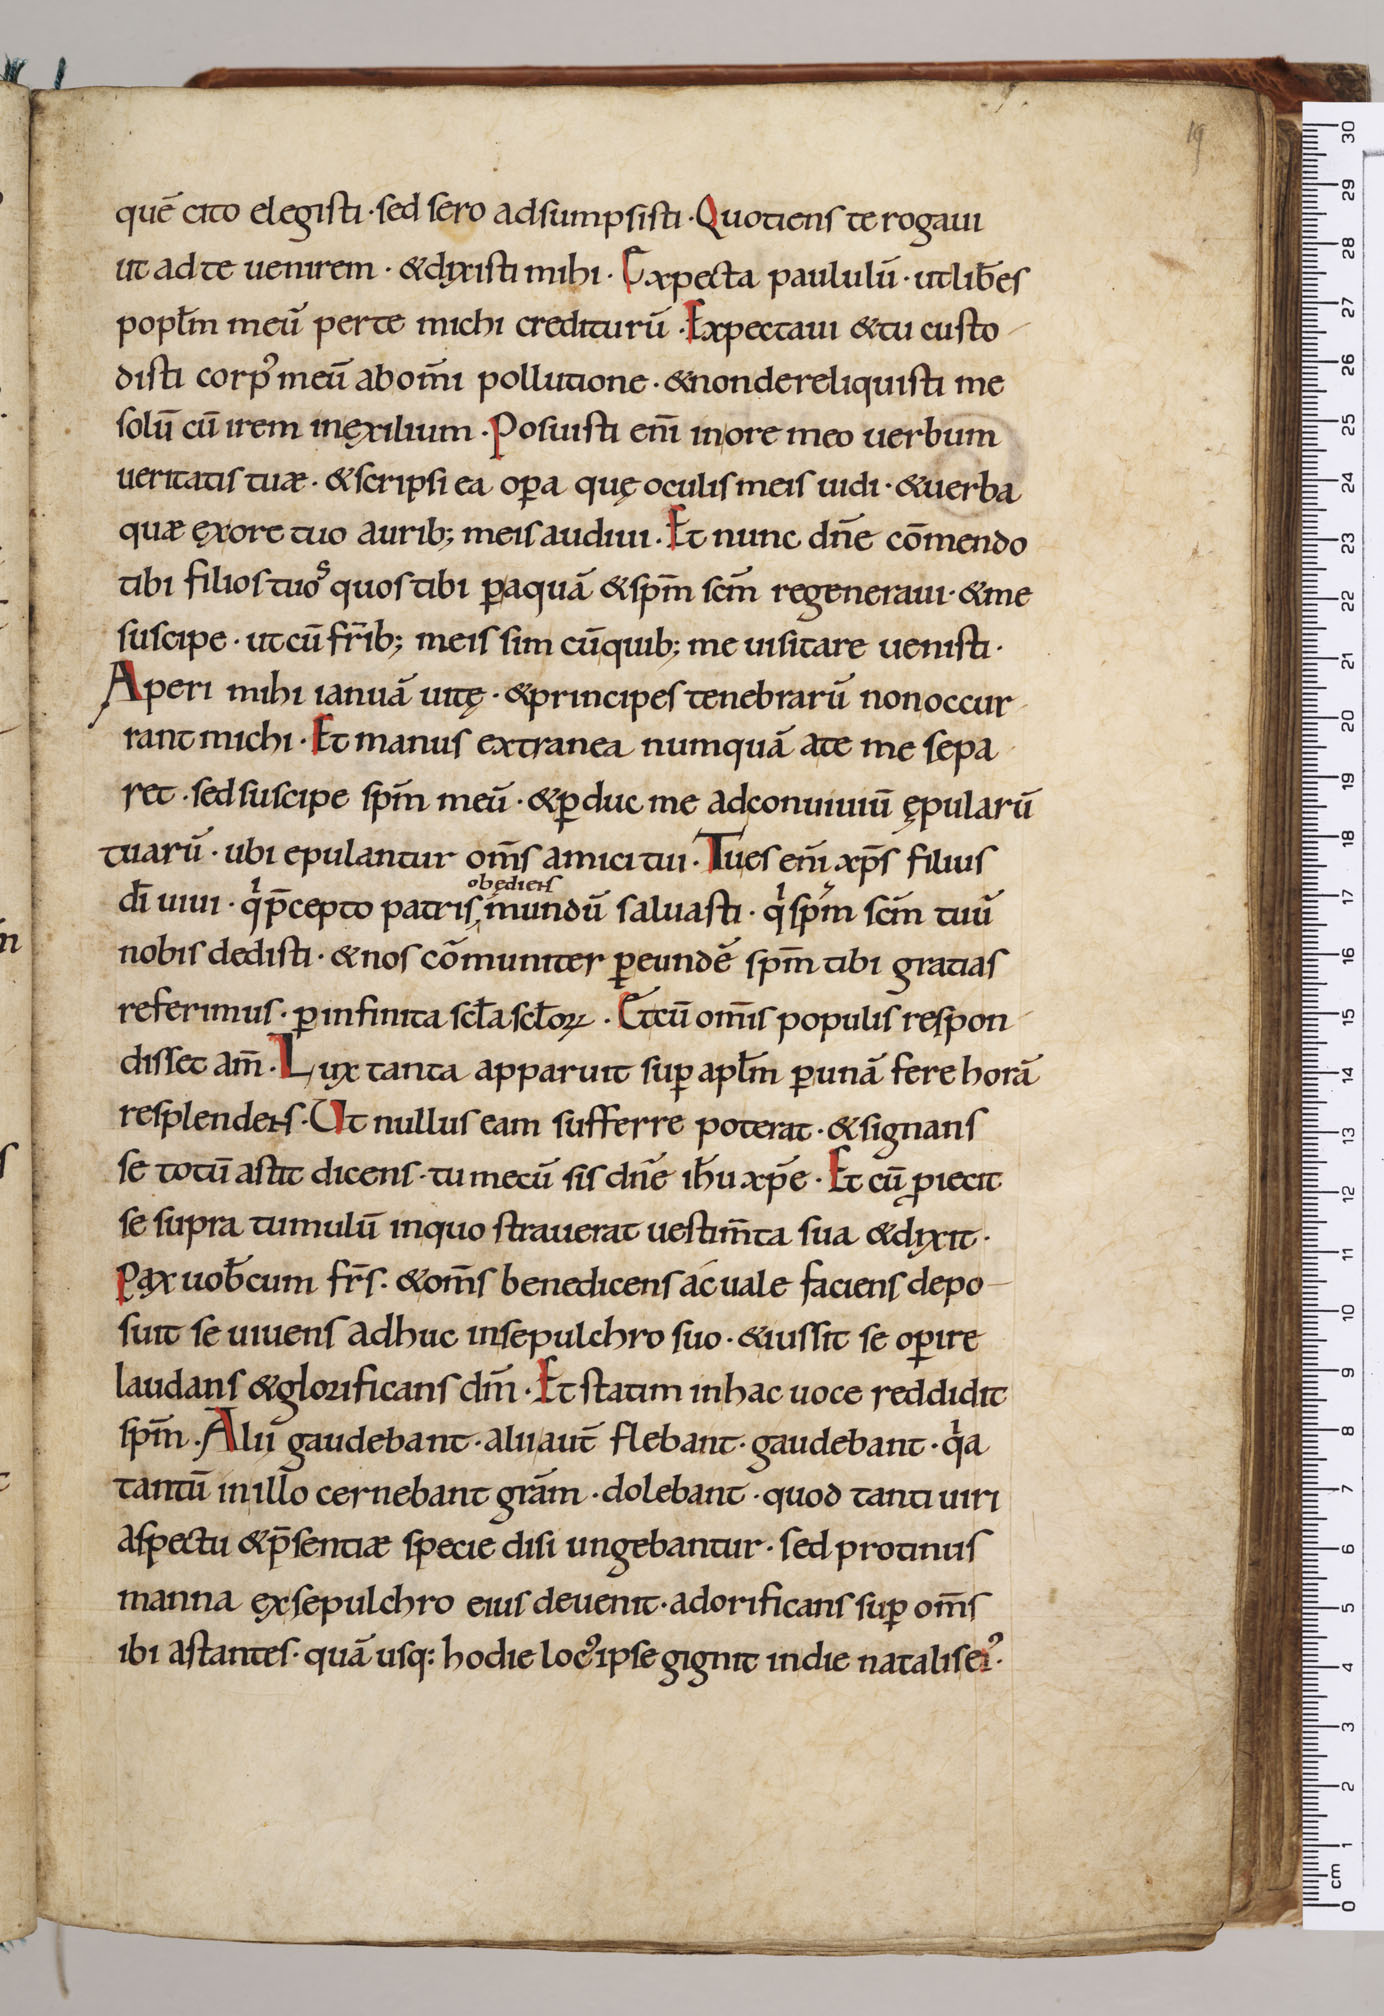 19
quē cito elegisti · sed sero adsumpsisti · Quotiens te rogaui
ut ad te uenirem · & dixisti mihi · Expecta paululū · ut liƀes
popl̄m meū per te michi crediturū · Expectaui & tu custo
disti corpꝰ meū ab om̄i pollutione · & non dereliquisti me
solū cū irem in ęxilium · Posuisti eni̅ in ore meo uerbum
ueritatis tuæ · & scripsi ea oꝑa quę oculis meis uidi · & uerba
quæ ęx ore tuo aurib; meis audiui · Et nunc dn̄e cōmendo
tibi filios tuos quos tibi ꝑ aquā & sp̄m sc̄m regeneraui · & me
suscipe · ut cū fr̄ib; meis sim cū quib; me uisitare uenisti ·
Aperi mihi ianuā uitę · & principes tenebrarū non occur
rant michi · Et manus extranea numquā a te me sepa
ret · sed suscipe sp̄m meū · & ꝑduc me ad conuiuiū ępularū
tuarū · ubi epulantur om̄s amici tui · Tu es eni̅ xp̄s filius
obędiens
dī uiui · qͥ p̄cepto patris mundū saluasti · qͥ sp̄m sc̄m tuū
nobis dedisti · & nos cōmuniter ꝑ eundē sp̄m tibi gratias
referimus · ꝑ infinita scl̄a scl̄oꝝ · Et cū om̄is populis respon
disset am̄ · Lux tanta apparuit suꝑ apl̄m ꝑ unā fere horā
resplendens · Ut nullus eam sufferre poterat · & signans
se totū astit dicens · tu mecū sis dn̄e ih̄u xp̄e · Et cū ꝑiecit
se supra tumulū in quo strauerat uestim̄ta sua & dixit ·
Pax uoƀcum fr̄s · & om̄s benedicens ac uale faciens depo
suit se uiuens adhuc in sepulchro suo · & iussit se oꝑire
laudans & glorificans dm̄ · Et statim in hac uoce reddidit
sp̄m · Alii gaudebant · alii aut̄ flebant · gaudebant · qͥa
tantū in illo cernebant grām · dolebant · quod tanti uiri
aspectu & p̄sentiæ specie disiungebantur · sed protinus
manna ęx sepulchro eius deuenit · adorificans suꝑ om̄s
ibi astantes · quā usq: hodie locꝰ ipse gignit in die natalis eiꝰ ·